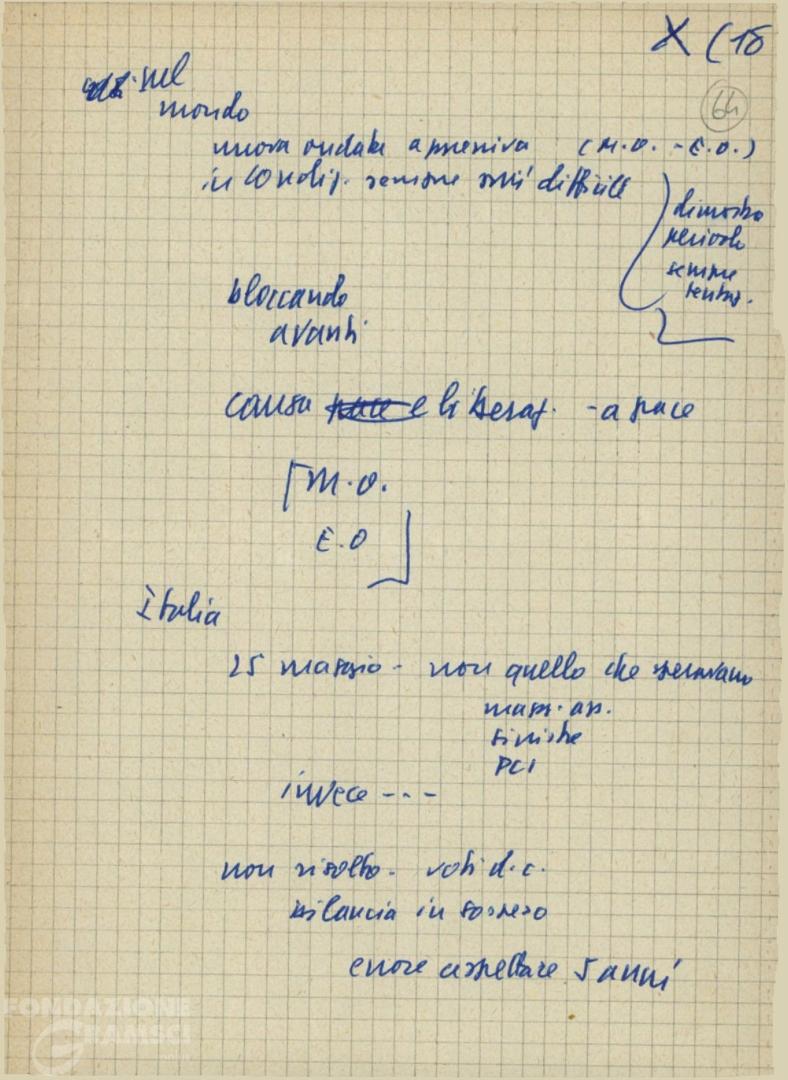 X (18
64
nel
mondo
nuova ondata aggressiva (M.O. - E.O.)
in condiz. sempre più difficile
dimostra
pericolo
sempre
bloccando
avanti
causa pace e liberaz. - a pace
M.O.
E.O
Italia
25 maggio - non quello che speravano
magg. ass.
sinistre
PCI
invece ---
non risolto - voti d.c.
bilancia in sospeso
errore aspettare 5 anni
FONDAZIONE
GRAMSCI